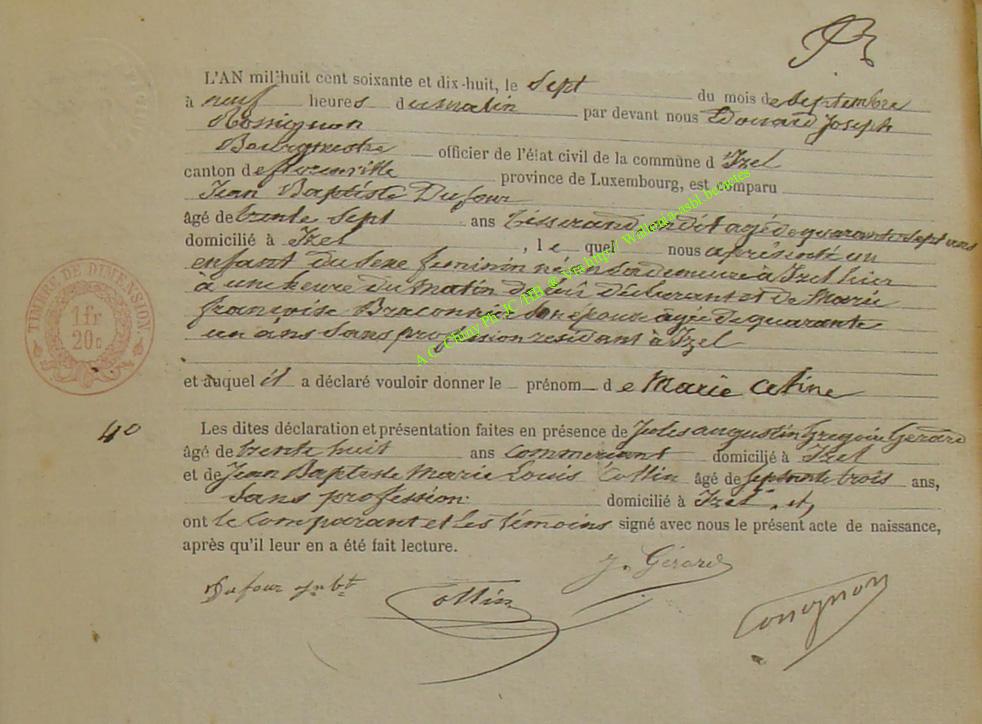 L'AN mil huit cent soixante et dix-huit, le sept du mois de septembre
à neuf heures du matin par devant nous Edouard Joseph
Rossignon
Bourgmestre officier de l'état civil de la commune d'Izel
canton de florenville province de Luxembourg, est comparu
Jean Baptiste Dufour
âgé de trente sept ans tisserand agé de quarante sept ans
domicilié à Izel, le quel nous a présenté un
enfant du sexe feminin né en sa demeure à Izel hier
à une heure du matin de lui déclarant et de Marie
françoise Braconnier son épouse agée de quarante
un ans sans profession residant à Izel
et auquel il a déclaré vouloir donner le prénom de Marie Celine
40
Les dites déclaration et présentation faites en présence de Jules augustin Gregoire Gérard
âgé de trente huit ans commerçant domicilié à Izel
et de Jean Baptiste Marie Louis Collin âgé de septante trois ans,
sans profession domicilié à Izel et,
ont le comparant et les témoins signé avec nous le présent acte de naissance,
après qu'il leur en a été fait lecture.
Dufour Jn bte
Collin
J. Gérard
Rossignon
TIMBRE DE DIMENSION
1fr
20c
A.C. Chiny Ph JC/HB @ Vrchnpj/ Wallonia-asbl.be/artes